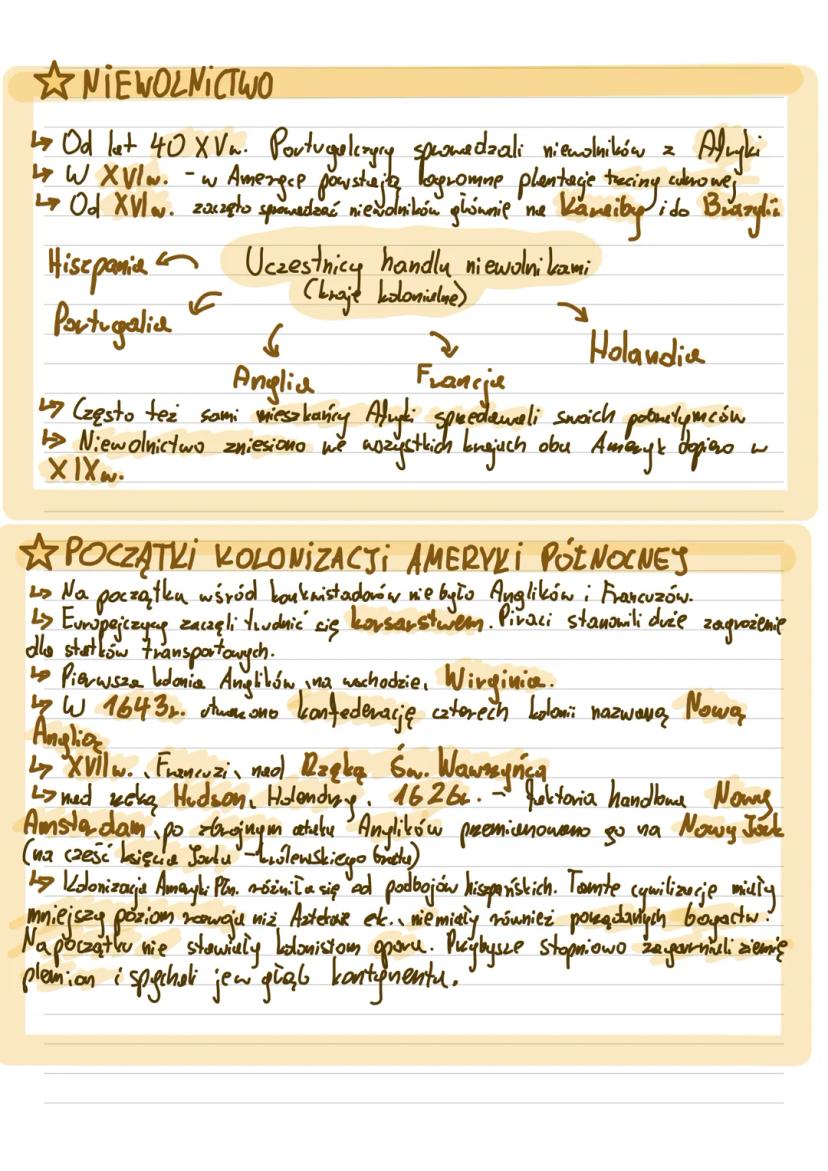 ☆ NIEWOLNICTWO
↳ Od lat 40 XV w. Portugalczycy sprowadzali niewolników z Afryki
↳ W XVI w. - w Ameryce powstają ogromne plantacje trzciny cukrowej
↳ Od XVI w. zaczęto sprowadzać niewolników głównie na Karaiby i do Brazylii
Uczestnicy handlu niewolnikami
(kraje kolonialne)
Hiszpania
Portugalia
Anglia
Francja
Holandia
↳ Często też sami mieszkańcy Afryki sprzedawali swoich pobratymców
↳ Niewolnictwo zniesiono we wszystkich krajach obu Ameryk dopiero w
XIX w.
☆ POCZĄTKI KOLONIZACJI AMERYKI PÓŁNOCNEJ
↳ Na początku wśród konkwistadorów nie było Anglików i Francuzów.
↳ Europejczycy zaczęli trudnić się korsarstwem. Piraci stanowili duże zagrożenie
dla statków transportowych.
↳ Pierwsza kolonia Anglików, na wschodzie, Wirginia.
↳ W 1643r. utworzono konfederację czterech kolonii nazwaną Nową
Anglią
↳ XVII w., Francuzi, nad Rzeką Św. Wawrzyńca
↳ nad rzeką Hudson, Holendrzy, 1626r. - faktoria handlowa Nowy
Amsterdam, po zbrojnym ataku Anglików przemianowano go na Nowy Jork
(na cześć księcia Jorku - królewskiego brata)
↳ Kolonizacja Ameryki Płn. różniła się od podbojów hiszpańskich. Tamte cywilizacje miały
mniejszy poziom rozwoju niż Aztekow ek., nie miały również pożądanych bogactw.
Na początku nie stawiały kolonistom oporu. Przybysze stopniowo zagarniali ziemię
plemion i spychali je w głąb kontynentu.